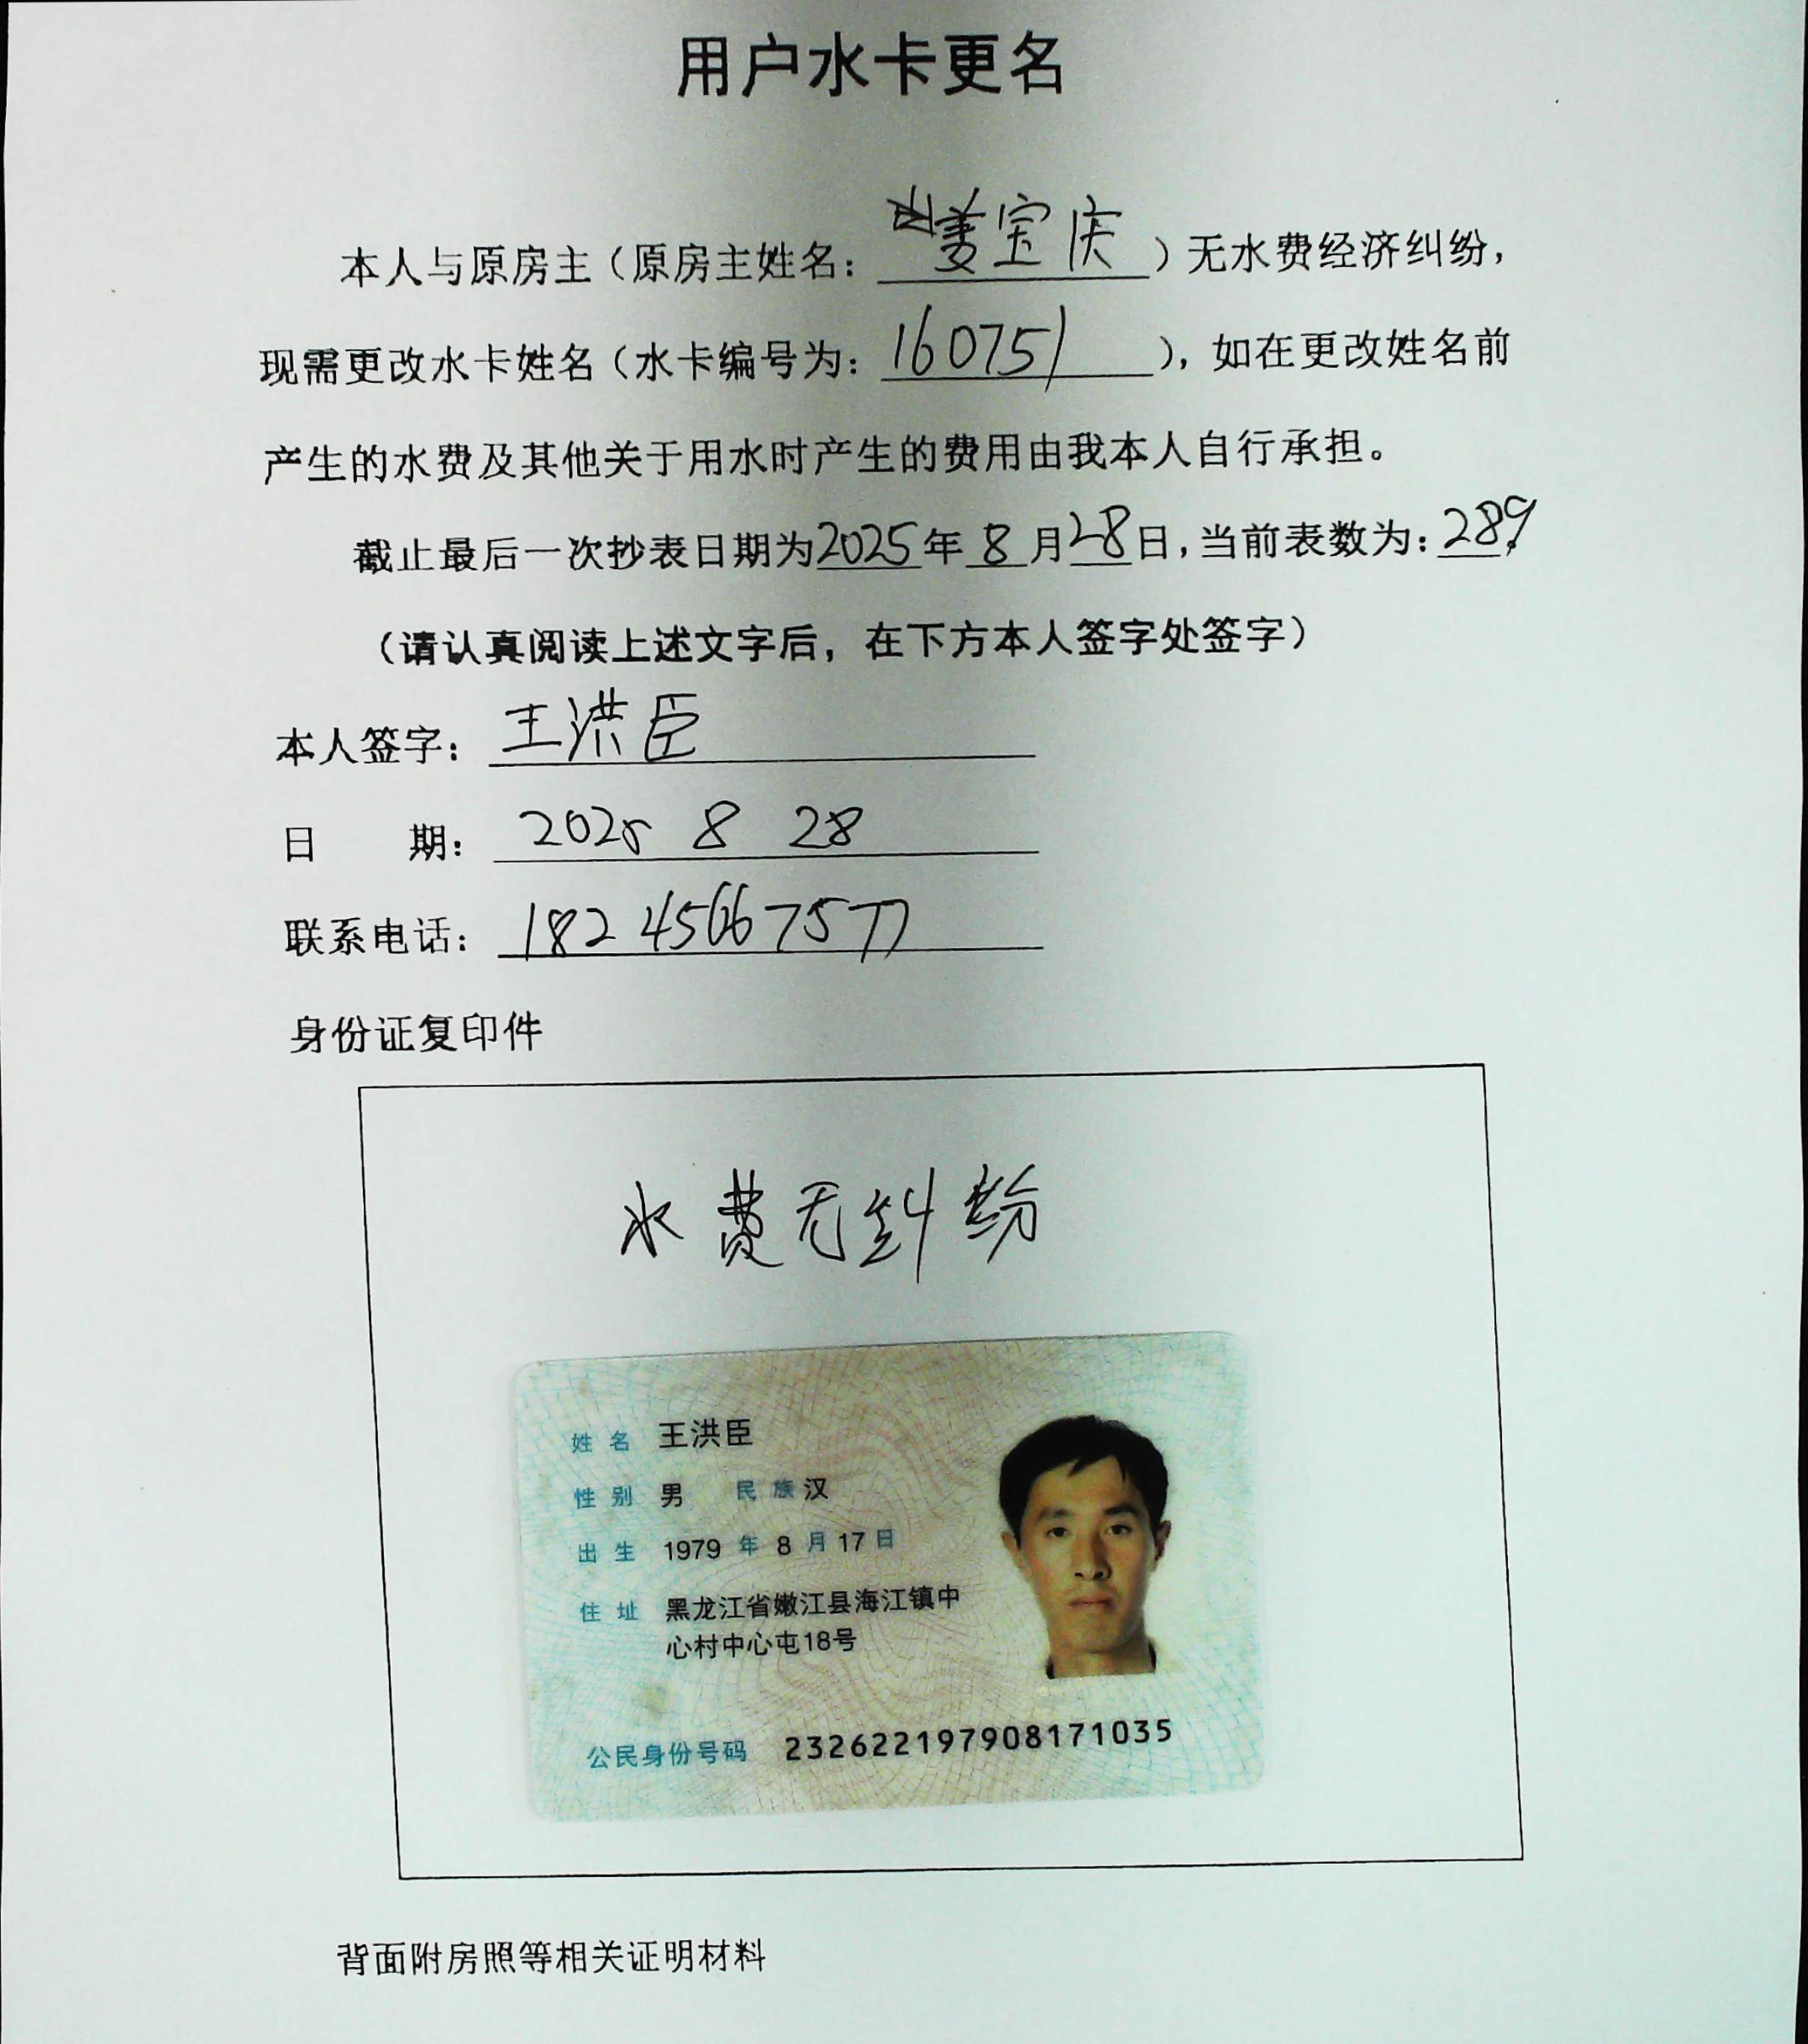 用户水卡更名
本人与原房主（原房主姓名：姜宝庆）无水费经济纠纷，
现需更改水卡姓名（水卡编号为：160751），如在更改姓名前
产生的水费及其他关于用水时产生的费用由我本人自行承担。
截止最后一次抄表日期为2025年8月28日,当前表数为:289
（请认真阅读上述文字后，在下方本人签字处签字）
本人签字：王洪臣
日 期：2025 8 28
联系电话：182 4566 7577
身份证复印件
水费无纠纷
姓名 王洪臣
性别 男 民族 汉
出生 1979 年 8 月 17 日
住址 黑龙江省嫩江县海江镇中
心村中心屯18号
公民身份号码 232622197908171035
背面附房照等相关证明材料